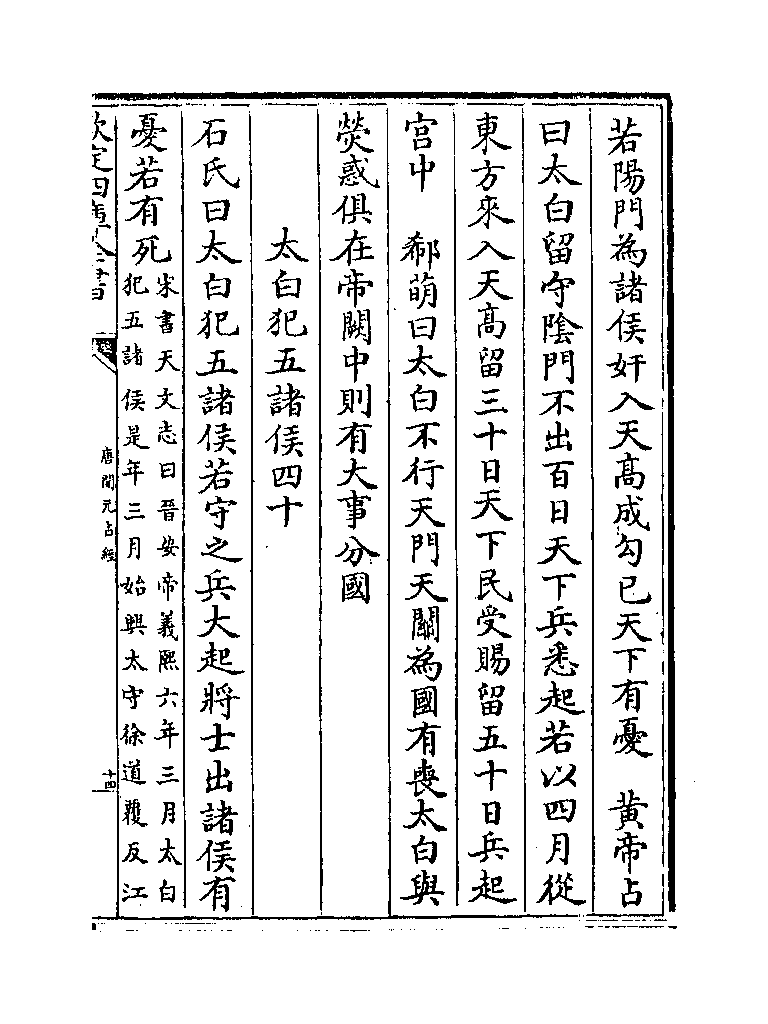 若陽門為諸侯奸入天髙成勾已天下有憂　黄帝占
曰太白留守陰門不出百日天下兵悉起若以四月從
東方來入天髙留三十日天下民受賜留五十日兵起
宫中　郗萌曰太白不行天門天關為國有喪太白與
熒惑俱在帝闕中則有大事分國
太白犯五諸侯四十
石氏曰太白犯五諸侯若守之兵大起將士出諸侯有
憂若有死
宋書天文志曰晉安帝義熈六年三月太白
犯五諸侯是年三月始興太守徐道覆反江
欽定四庫全書
唐開元占經
十四